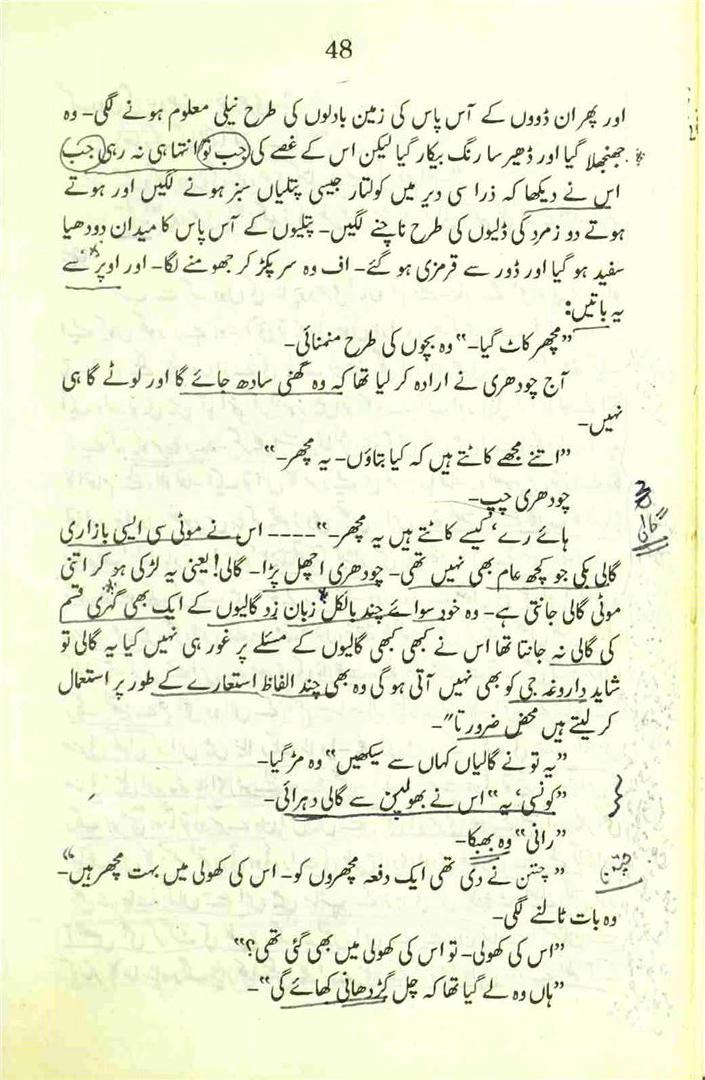 48
اور پھر ان ڈووں کے آس پاس کی زمین بادلوں کی طرح نیلی معلوم ہونے لگی- وہ
جھنجھلا گیا اور ڈھیر سا رنگ بیکار گیا لیکن اس کے غصے کی جب تو انتہا ہی نہ رہی جب
اس نے دیکھا کہ ذرا سی دیر میں کولتار جیسی پتلیاں سبز ہونے لگیں اور ہوتے
ہوتے دو زمرد کی ڈلیوں کی طرح ناچنے لگیں- پتلیوں کے آس پاس کا میدان دودھیا
سفید ہو گیا اور ڈور سے قرمزی ہو گئے- اف وہ سر پکڑ کر جھومنے لگا- اور اوپر سے
یہ باتیں:
”مچھر کاٹ گیا-“ وہ بچوں کی طرح منمنائی-
آج چودھری نے ارادہ کر لیا تھا کہ وہ گھنی سادھ جائے گا اور لوٹے گا ہی
نہیں-
”اتنے مجھے کاٹتے ہیں کہ کیا بتاؤں- یہ مچھر-“
چودھری چپ-
ہائے رے‘ کیسے کاٹتے ہیں یہ مچھر-“---- اس نے موٹی سی ایسی بازاری
گالی بکی جو کچھ عام بھی نہیں تھی- چودھری اچھل پڑا- گالی! یعنی یہ لڑکی ہو کر اتنی
موٹی گالی جانتی ہے- وہ خود سوائے چند بالکل زبان زد گالیوں کے ایک بھی گہری قسم
کی گالی نہ جانتا تھا اس نے کبھی کبھی گالیوں کے مسئلے پر غور ہی نہیں کیا یہ گالی تو
شاید داروغہ جی کو بھی نہیں آتی ہو گی وہ بھی چند الفاظ استعارے کے طور پر استعمال
کر لیتے ہیں محض ضرورتا"-
”یہ تو نے گالیاں کہاں سے سیکھیں“ وہ مڑ گیا-
”کونسی‘ یہ“ اس نے بھولپن سے گالی دہرائی-
”رانی“ وہ بھبکا-
”چتن نے دی تھی ایک دفعہ مچھروں کو- اس کی کھولی میں بہت مچھر ہیں“-
چتن
وہ بات ٹالنے لگی-
”اس کی کھولی- تو اس کی کھولی میں بھی گئی تھی؟“
”ہاں وہ لے گیا تھا کہ چل گڑدھانی کھائے گی“-